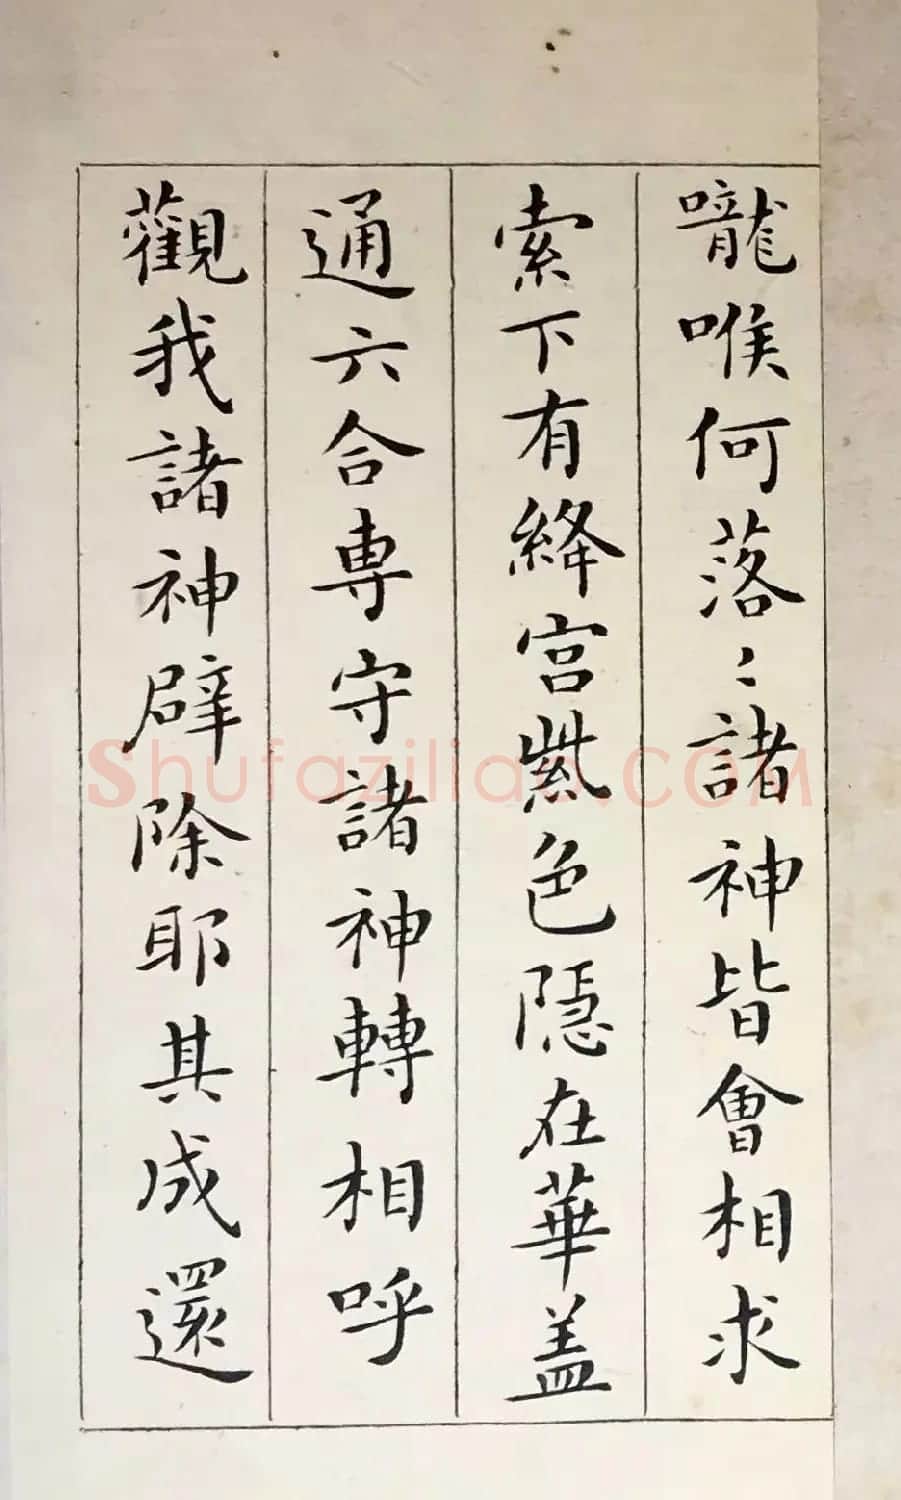 嚨喉何落〻諸神皆會相求
索下有絳宮紫色隱在華盖
通六合専守諸神轉相呼
觀我諸神辟除耶其成還
Shufaziliao.COM